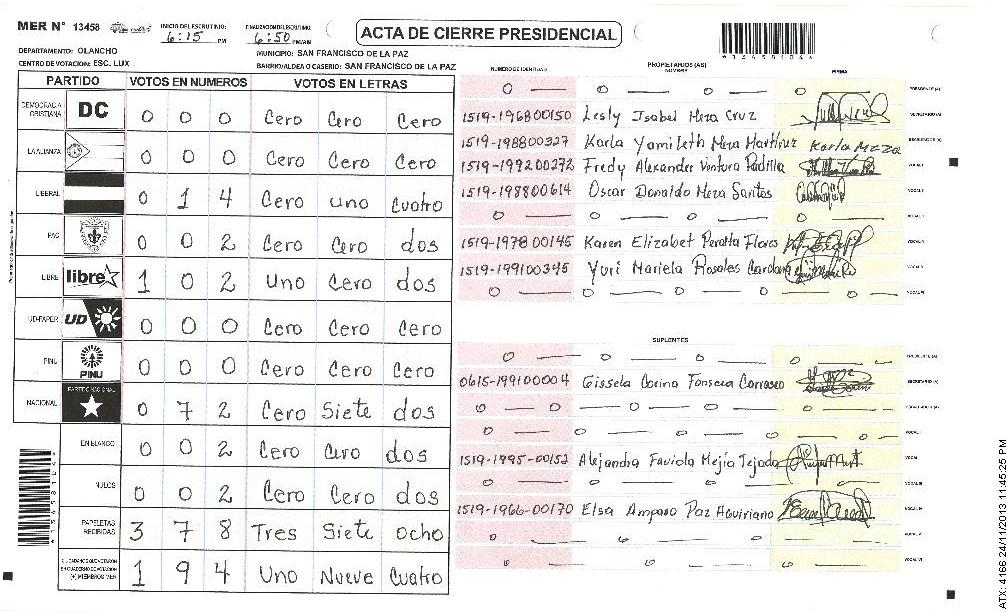 MER N° 13458
INICIO DEL ESCRUTINIO: 6:15 PM
FINALIZACION DEL ESCRUTINIO: 6:50 PM/AM
ACTA DE CIERRE PRESIDENCIAL
DEPARTAMENTO: OLANCHO
MUNICIPIO: SAN FRANCISCO DE LA PAZ
CENTRO DE VOTACION: ESC. LUX
BARRIO/ALDEA O CASERIO: SAN FRANCISCO DE LA PAZ
PARTIDO VOTOS EN NUMEROS VOTOS EN LETRAS
DEMOCRACIA CRISTIANA DC 0 0 0 Cero Cero Cero
LA ALIANZA 0 0 0 Cero Cero Cero
LIBERAL 0 1 4 Cero uno cuatro
PAC 0 0 2 Cero Cero dos
LIBRE libre 1 0 2 Uno Cero dos
UD-FAPER UD 0 0 0 Cero Cero Cero
PINU PINU 0 0 0 Cero Cero Cero
NACIONAL PARTIDO NACIONAL 0 7 2 Cero Siete dos
EN BLANCO 0 0 2 Cero Cero dos
NULOS 0 0 2 Cero Cero dos
PAPELETAS RECIBIDAS 3 7 8 Tres Siete ocho
CIUDADANOS QUE VOTARON EN CUADERNO DE VOTACION (+) MIEMBROS MER 1 9 4 Uno Nueve Cuatro
NUMERO DE IDENTIDAD PROPIETARIOS (AS) NOMBRE FIRMA
0 — 0 — 0 — 0 — PRESIDENTE (A)
1519-196800150 Lesly Isabel Meza Cruz SECRETARIO (A)
1519-198800327 Karla Yamileth Meza Martinez Karla Meza ESCRUTADOR (A)
1519-199200272 Fredy Alexander Ventura Padilla VOCAL I
1519-198800614 Oscar Donaldo Meza Santos VOCAL II
0 — 0 — 0 — 0 — VOCAL III
1519-197800145 Karen Elizabet Peralta Flores VOCAL IV
1519-199100345 Yuri Mariela Rosales Cardona VOCAL V
0 — 0 — 0 — 0 — 0 — VOCAL VI
SUPLENTES
0 — 0 — 0 — 0 — PRESIDENTE (A)
0615-199100004 Gissela Corina Fonseca Carrasco SECRETARIO (A)
0 — 0 — 0 — 0 — 0 — ESCRUTADOR (A)
0 — 0 — 0 — 0 — 0 — VOCAL I
1519-1995-00152 Alejandra Faviola Mejía Tejada VOCAL II
0 — 0 — 0 — 0 — VOCAL III
1519-1966-00170 Elsa Amparo Paz Aguiriano VOCAL IV
0 — 0 — 0 — 0 — VOCAL V
0 — 0 — 0 — 0 — VOCAL VI
ATX: 4166 24/11/2013 11:45:25 PM